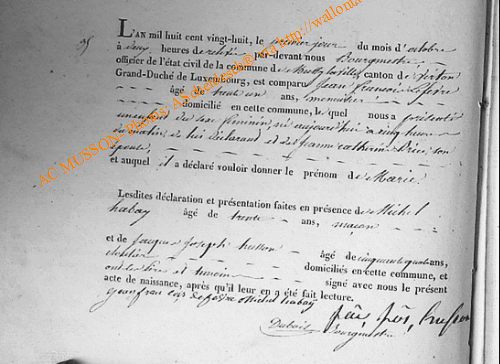 L'AN mil huit cent vingt-huit, le premier jour du mois d'octobre
à deux heures de relevée par-devant nous Bourgmestre
officier de l'état civil de la commune de canton de
Grand-Duché de Luxembourg, est comparu Jean françois Lefevre
âgé de trente un ans, menuisier
domicilié en cette commune, le quel nous a présenté
un enfant du sexe féminin, né aujourd'hui à cinq heures
du matin, de lui déclarant et de Jeanne Catherine son
épouse,
et auquel il a déclaré vouloir donner le prénom de Marie
Lesdites déclaration et présentation faites en présence de Michel
habay âgé de trente ans, maçon
et de Jacques Joseph husson âgé de cinquante quatre ans,
cloutier domiciliés en cette commune, et
ont les père et témoins signé avec nous le présent
acte de naissance, après qu'il leur en a été fait lecture.
jean fran çois lefevre Michel habay husson
Bourgmestre
AC MUSSON- Photos: AS http://wallonia